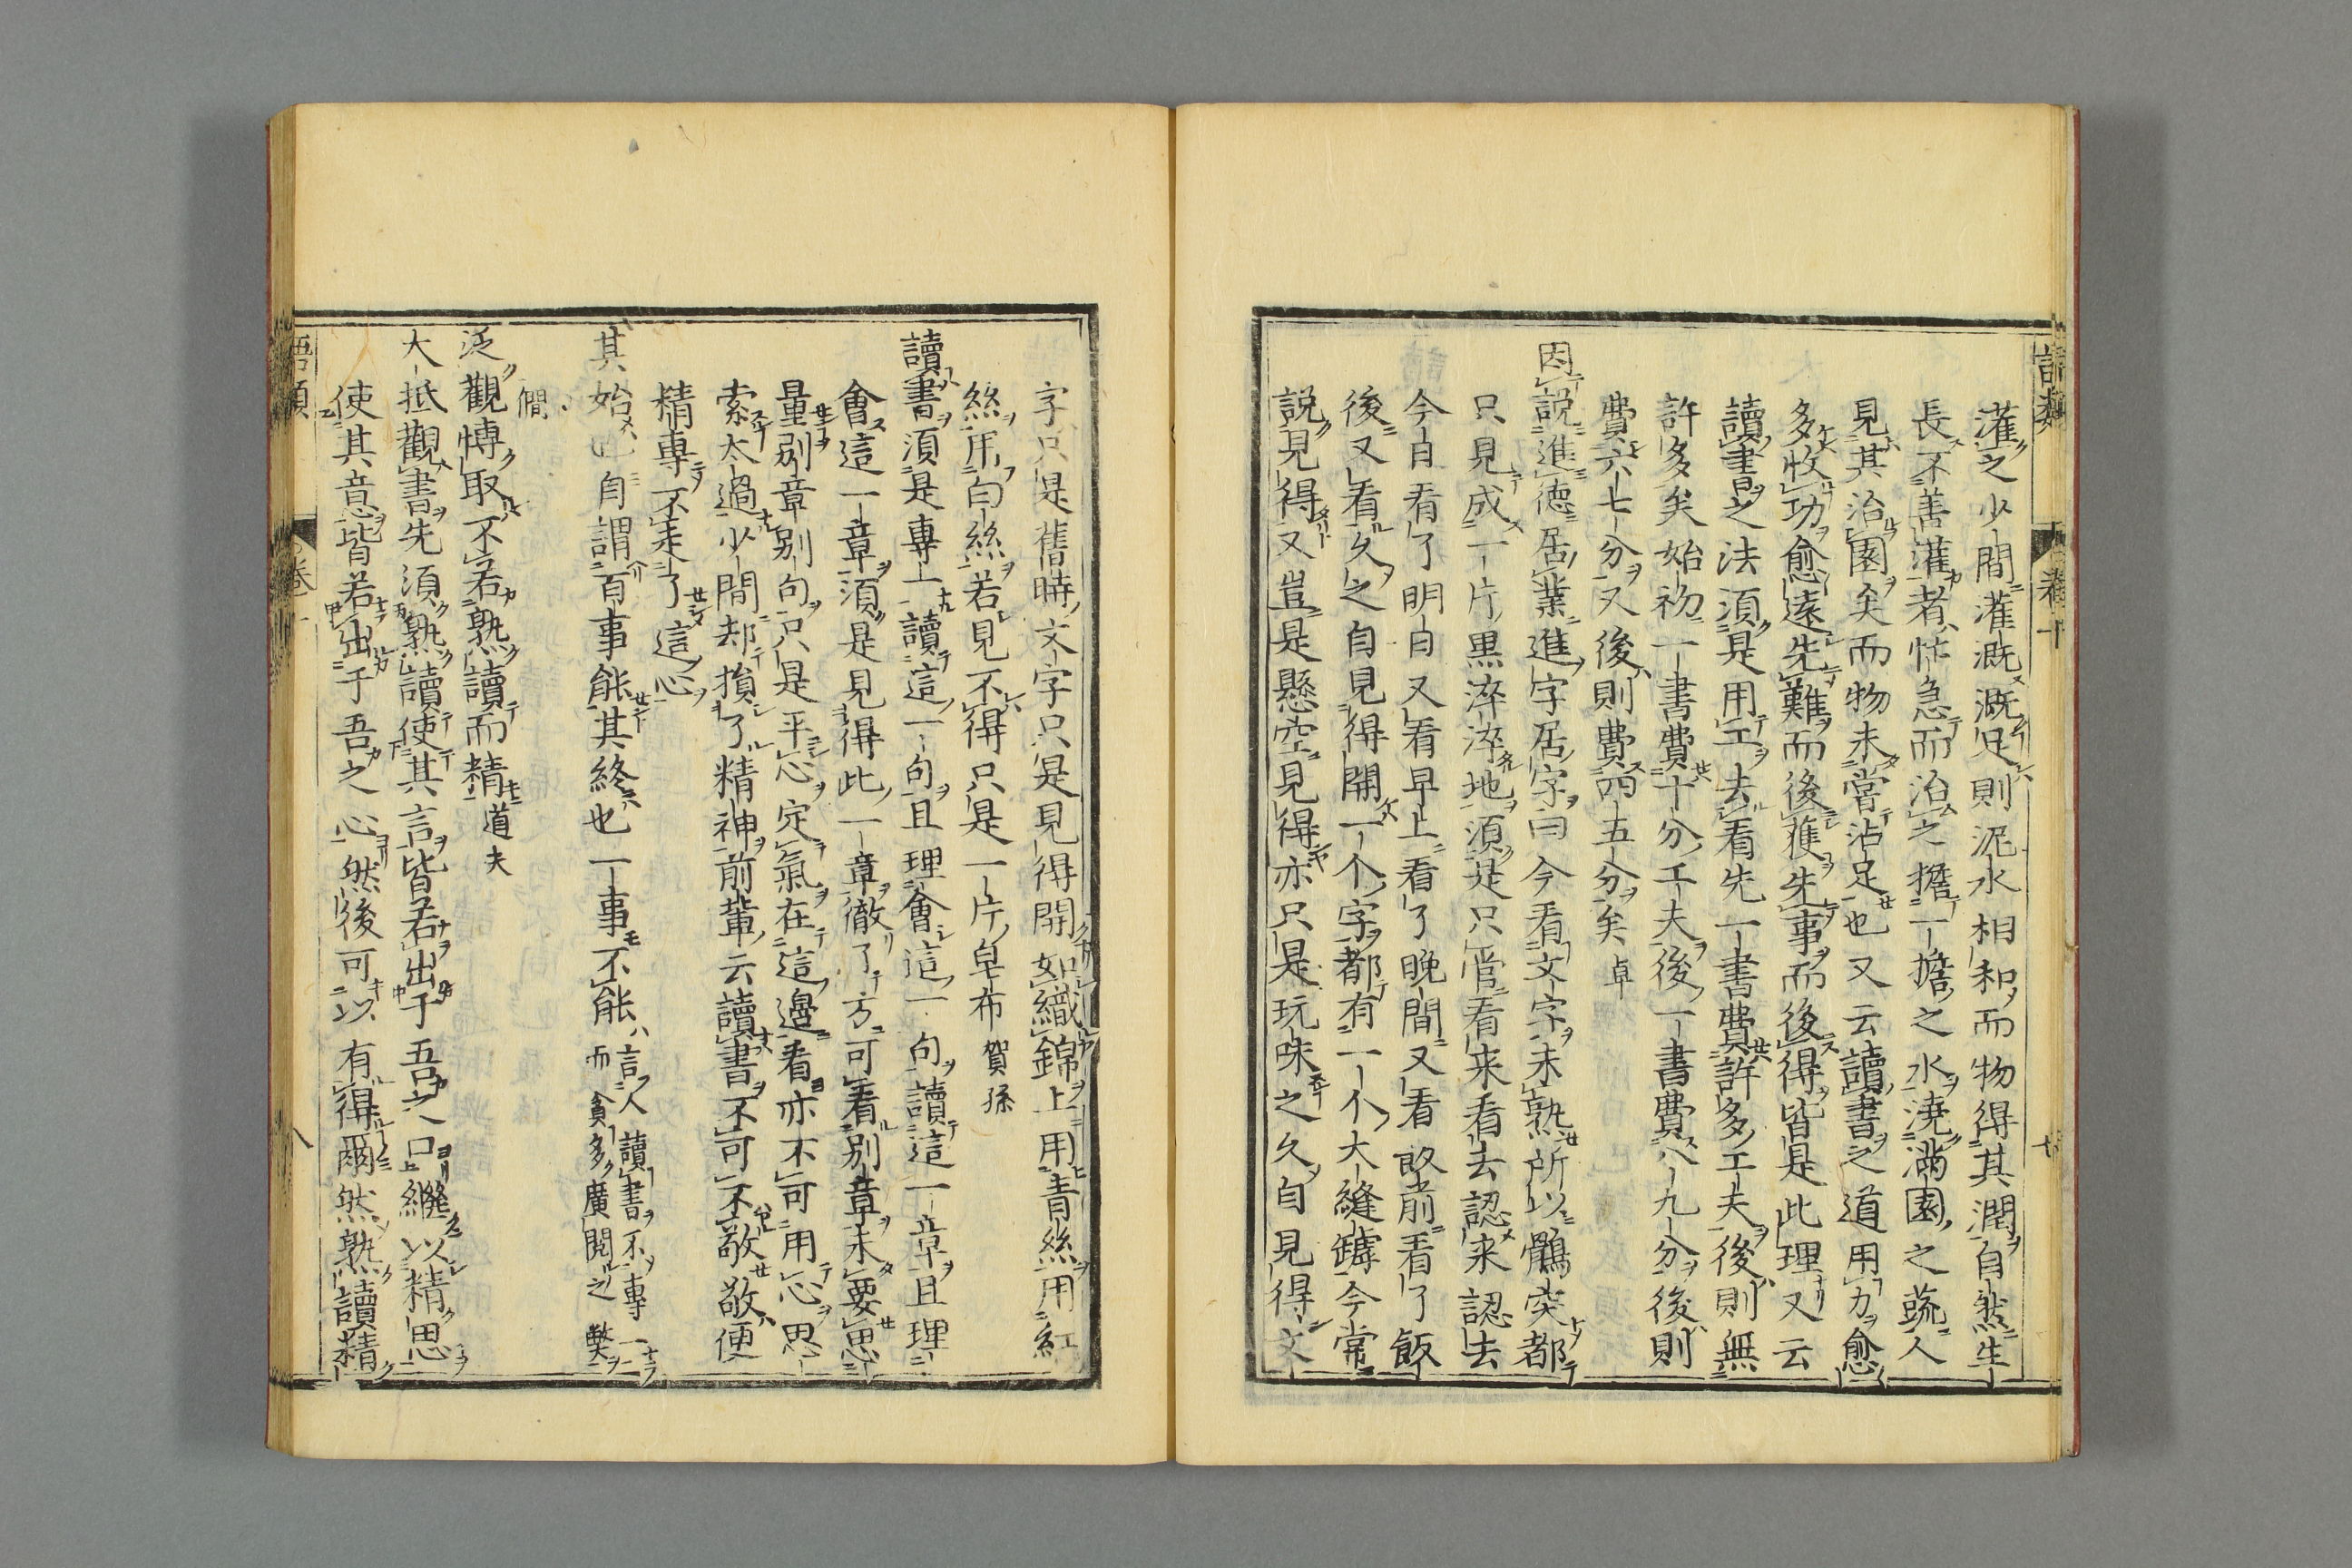 灌之少間灌漑漑足則泥水相和而物得其潤自然生
長不善灌者忙急而治之擔一擔之水澆滿園之蔬人
見其治園矣而物未嘗沾足也又云讀書之道用力愈
多收功愈遠先難而後獲先事而後得皆是此理又云
讀書之法須是用工去看先一書費許多工夫後則無
許多矣始初一書費十分工夫後一書費八九分後則
費六七分又後則費四五分矣卓
因說進德居業進字居字曰今看文字未熟所以鶻突都
只見成一片黒淬淬地須是只管看来看去認来認去
今日看了明日又看早上看了晚間又看飯前看了飯
後又看久之自見得開一个字都有一个大縫罅今常
説見得又豈是懸空見得亦只是玩味之久自見得文
字只是舊時文字只是見得開如織錦上用青絲用紅
絲用白絲若見不得只是一片皂布賀孫
讀書須是專一讀這一句且理會這一句讀這一章且理
會這一章須是見得此一章徹了方可看別章未要思
量別章別句只是平心定氣在這邊看亦不可用心思
索太過少間却損了精神前輩云讀書不可不敬敬便
精專不走了這心
其始也自謂百事能其終也一事不能言人讀書不專一而貪多廣閱之弊
僩
泛觀博取不若熟讀而精道夫
大抵觀書先須熟讀使其言皆若出于吾之口繼以精思
使其意皆若出于吾之心然後可以有得爾然熟讀精
語類
卷十
八